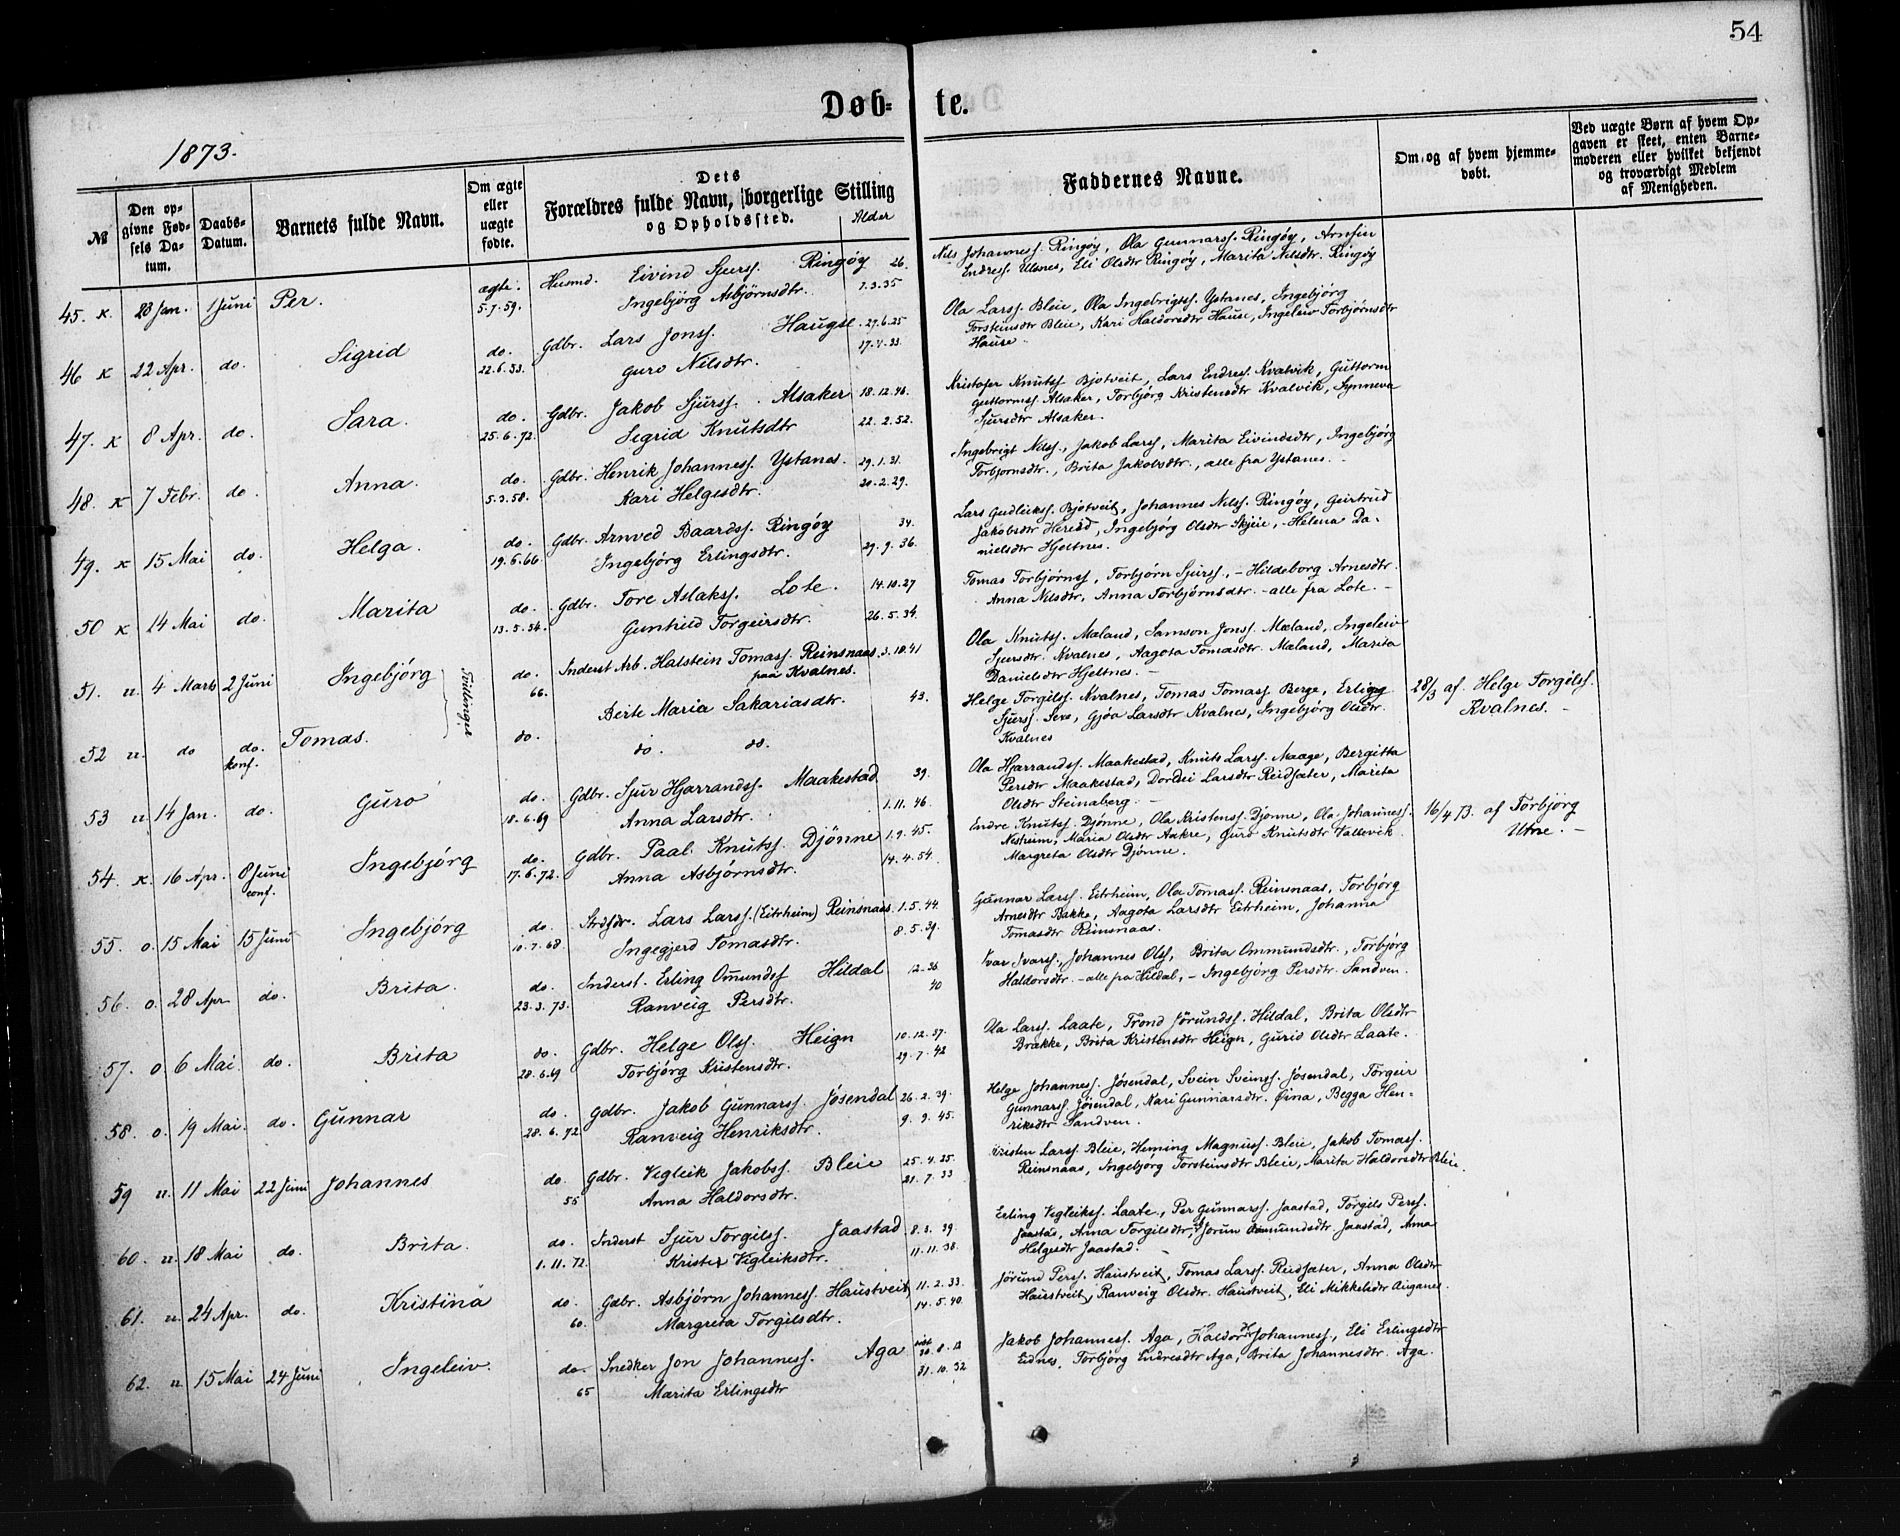 54
Døb- te.
1873.
№
Den op-
givne Fød-
sels Da-
tum.
Daabs-
Datum.
Barnets fulde Navn.
Om ægte
eller
uægte
fødte.
Dets
Forældres fulde Navn, borgerlige Stilling
og Opholdssted.
Alder
Faddernes Navne.
Om og af hvem hjemme-
døbt.
Ved uægte Børn af hvem Op-
gaven er skeet, enten Barne-
moderen eller hvilket bekjendt
og troværdigt Medlem
af Menigheden.
45. K. 23 Jan. 1 Juni Per. ægte. Husmd. Eivind Sjurss. Ringöy 26.
5.7.59. Ingebjörg Asbjörnsdtr. 1.3.35
Nils Johanness. Ringöy, Ola Gunnarss. Ringöy, Arnfin
Endress. Ulsnes, Eli Olsdtr Ringöy, Marita Nilsdtr. Ringöy
46 K 22 Apr. do. Sigrid do. Gdbr. Lars Jonss. Haugse 27.6.25
22.6.53. Guro Nilsdtr. 17.4.33.
Ola Larss. Bleie, Ola Ingebrigtss. Ystanes, Ingebjörg
Torsteinsdtr Bleie, Kari Haldorsdtr Hause, Ingeleiv Torbjørnsdtr
Hause.
47. K 8 Apr. do. Sara. do. Gdbr. Jakob Sjurss. Alsaker 18.12.46.
25.6.72. Sigrid Knutsdtr 22.2.52.
Kristofer Knutss Bjotveit, Lars Endress. Kvalvik, Guttorm
Guttormss. Alsaker, Torbjørg Kristensdtr Kvalvik, Synneva
Sjursdtr Alsaker.
48. K 7 Febr. do. Anna. do. Gdbr. Henrik Johanness. Ystanes. 29.1.31.
5.3.58. Kari Helgesdtr. 20.2.29.
Ingebrigt Nilss., Jakob Larss, Marita Eivindsdtr, Ingebjørg
Torbjørnsdtr., Brita Jakobsdtr., alle fra Ystanes.
49. K 15 Mai do. Helga. do. Gdbr. Arnved Baardss. Ringöy 34.
19.6.66. Ingebjørg Erlingsdtr. 29.9.36.
Lars Gudleikss. Bjotveit, Johannes Nilss. Ringöy, Geirtrud
Jakobsdtr Hereid, Ingebjørg Olsdtr Skjeie, Helena Da-
nielsdtr Hjeltnes.
50 K 14 Mai do. Marita do. Gdbr. Tore Aslakss. Lote. 14.10.27
13.5.54. Gunhild Torgeirsdtr. 26.5.34.
Tomas Torbjørnss, Torbjørn Sjurss., - Hildeborg Arnesdtr.
Anna Nilsdtr, Anna Torbjørnsdtr. - alle fra Lote. -
51. u. 4 Marts 2 Juni Ingebjørg do. Inderst Arb. Halstein Tomass. Reinsnaas 3.10.41
paa Kvalnes.
66. Berte Maria Sakariasdtr. 43.
Tvillinger
Ola Knutss. Mæland, Samson Jonss. Mæland, Ingeleiv
Sjursdtr. Kvalnes, Aagota Tomasdtr. Mæland, Marita
Danielsdtr Hjeltnes. -
52 u. do do. konf. Tomas. do. do. do.
Helge Torgilss. Kvalnes, Tomas Tomass. Berge, Erling
Sjurss. Sexe, Gjøa Larsdtr Kvalnes, Ingebjørg Olsdtr.
Kvalnes
28/3 af. Helge Torgilss.
Kvalnes. -
53 u. 14 Jan. do. Guro do. Gdbr. Sjur Hjærrandss. Maakestad 39.
18.6.69 Anna Larsdtr. 1.11.46.
Ola Hjærrandss. Maakestad, Knut Larss. Maage, Bergitta
Persdtr Maakestad, Dordei Larsdtr Reidsæter, Marita
Olsdtr Steinaberg. -
54. K. 16 Apr. 8 Juni conf. Ingebjörg do. Gdbr. Paal Knutss. Djönne 1.9.45.
17.6.72. Anna Asbjørnsdtr. 14.4.54.
Endre Knutss. Djønne, Ola Kristenss. Djönne, Ola Johanness.
Nestrum, Maria Olsdtr Aakre, Guro Knutsdtr Vallevik,
Margreta Olsdtr Djønne.
16/4 73. af Torbjørg
Utne. -
55. o. 15 Mai 15 Juni Ingebjørg do. Lars Larss. (Eitrheim) Reinsnaas 1.5.44.
10.7.68. Ingegjerd Tomasdtr. 8.5.39.
Gunnar Larss. Eitrheim, Ola Tomass. Reinsnaas, Torbjörg
Arnesdtr Bakke, Aagota Larsdtr Eitrheim, Johanna
Tomasdtr Reinsnaas.
56. o. 28 Apr. do. Brita. do. Inderst. Erling Omundss Hildal 12.36
23.3.73. Ranveig Persdtr. 40
Ivar Ivarss., Johannes Olss, Brita Ommundsdtr., Torbjørg
Haldorsdtr. - alle fra Hildal, - Ingebjørg Persdtr. Sandven.
57. o 6 Mai. do. Brita do. Gdbr. Helge Olss. Heign 10.12.37.
28.6.69 Torbjörg Kristensdtr. 29.7.42
Ola Larss. Laate, Trond Jörundss. Hildal, Brita Olsdtr
Brække, Brita Kristensdtr Heign, Gurid Olsdtr Laate.
58. o. 19 Mai. do. Gunnar do. Gdbr. Jakob Gunnarss. Jösendal 26.2.39.
28.6.72 Ranveig Henriksdtr. 9.9.45.
Helge Johanness. Jösendal, Svein Sveinss. Jösendal, Torgeir
Gunnarss. Jösendal, Kari Gunnarsdtr. Eina, Begga Hen-
riksdtr Sandven.
59 u. 11 Mai 22 Juni Johannes do. Gdbr. Vegleik Jakobss. Bleie 25.4.25.
55 Anna Haldorsdtr. 21.7.33
Kristen Larss. Bleie, Heming Magnuss. Bleie, Jakob Tomass.
Reinsnaas, Ingebjörg Torsteinsdtr Bleie, Marita Haldorsdtr Bleie.
60. u. 18 Mai do. Brita. do. Inderst Sjur Torgilss. Jaastad 8.3.39.
1.11.72. Krister Vigleiksdtr. 11.11.38.
Erling Vegleikss. Laate, Per Gunnarss. Jaastad, Torgils Perss.
Jaastad, Anna Torgilsdtr, Jorun Omundsdtr Jaastad, Anna
Helgesdtr Jaastad.
61. u. 24 Apr. do. Kristina do. Gdbr. Asbjørn Johanness. Haustveit, 11.2.33.
60. Margreta Torgilsdtr. 14.5.40.
Jörund Perss. Haustveit, Tomas Larss. Reidsæter, Anna Olsdtr
Haustveit, Ranveig Olsdtr. Haustveit, Eli Mikkelsdtr Aiganes.
62. u. 15 Mai 24 Juni Ingeleiv. do. Snedker Jon Johanness. Aga
65 Marita Erlingsdtr 31.10.32
Jakob Johanness. Aga, Haldor Johanness, Eli Erlingsdtr
Eidnes, Torbjörg Endresdtr Aga, Brita Johannesdtr. Aga.